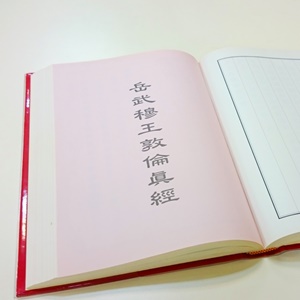 岳武穆王敦倫眞經